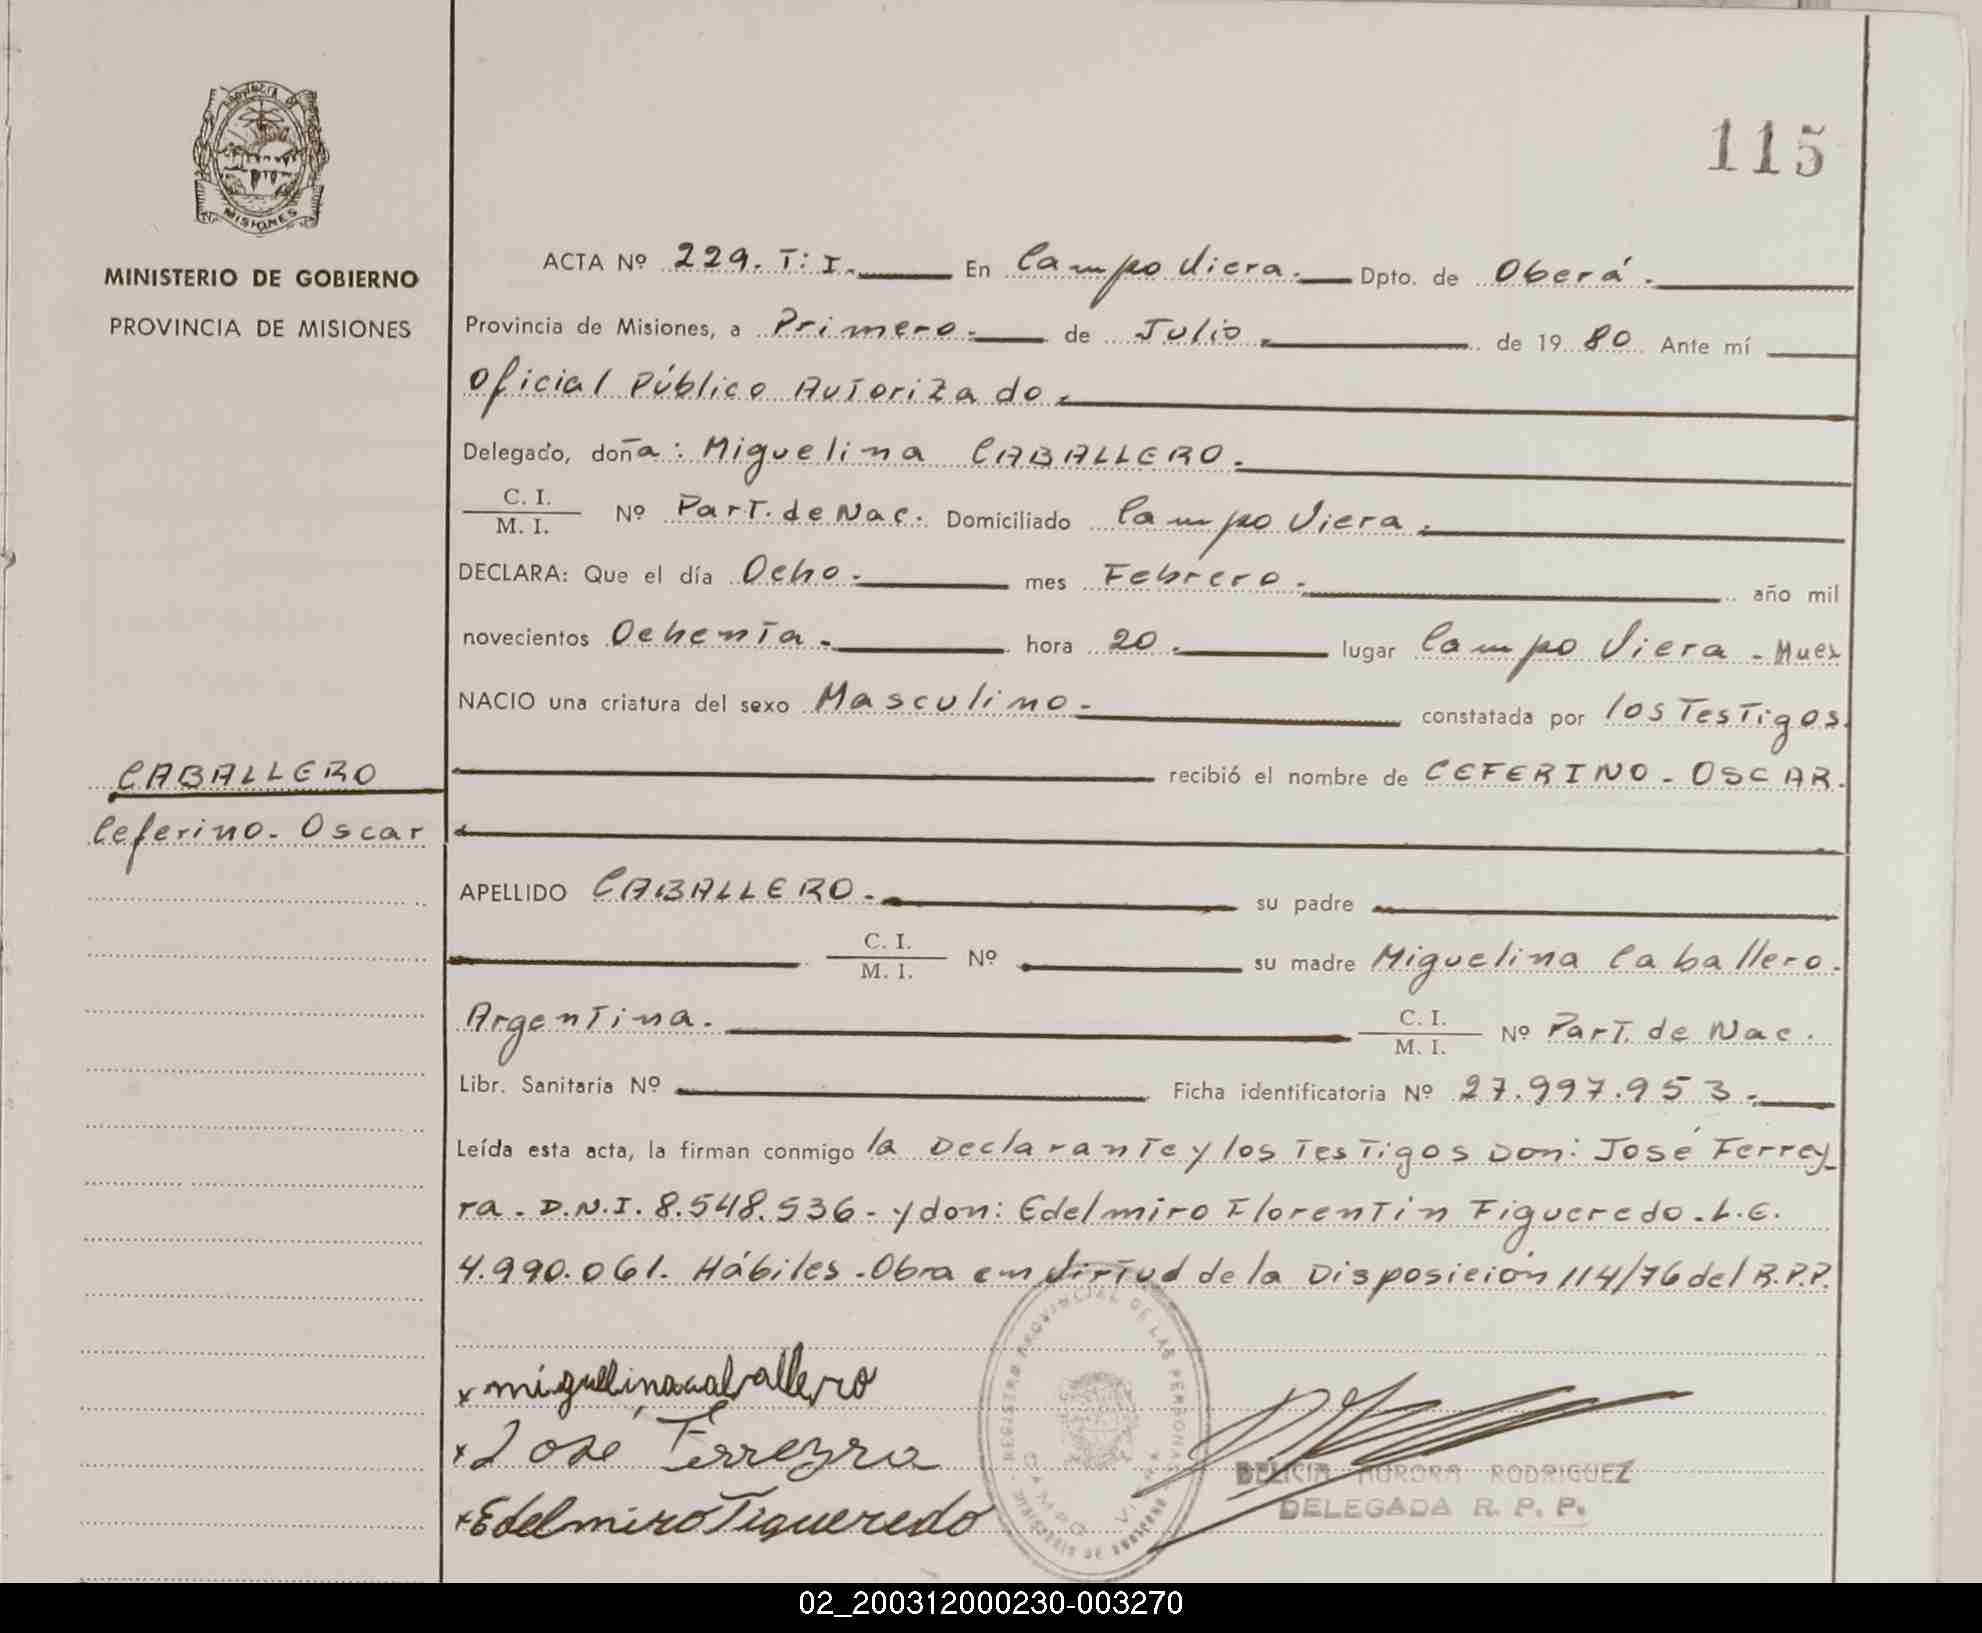 PROVINCIA DE
MISIONES
MINISTERIO DE GOBIERNO
PROVINCIA DE MISIONES
115
ACTA Nº 229. T: I. En Campo Viera. Dpto. de Oberá.
Provincia de Misiones, a Primero. de Julio. de 19 80 Ante mí
Oficial Público Autorizado.
Delegado, doña: Miguelina CABALLERO.
C. I.
M. I. Nº Part. de Nac. Domiciliado Campo Viera.
DECLARA: Que el día Ocho. mes Febrero. año mil
novecientos Ochenta. hora 20. lugar Campo Viera -
NACIO una criatura del sexo Masculino. constatada por los Testigos.
CABALLERO recibió el nombre de CEFERINO - OSCAR.
Ceferino - Oscar
APELLIDO CABALLERO. su padre
C. I.
M. I. Nº su madre Miguelina Caballero.
Argentina. C. I.
M. I. Nº Part. de Nac.
Libr. Sanitaria Nº Ficha identificatoria Nº 27.997.953.
Leída esta acta, la firman conmigo la Declarante y los Testigos Don: José Ferrey
ra - D.N.I. 8.548.536 - y don: Edelmiro Florentin Figueredo. L.E.
4.990.061. Hábiles. Obra en virtud de la Disposición 114/76 del R.P.P.
x miguelina caballero
x José Ferreyra
x Edelmiro Figueredo
REGISTRO PROVINCIAL DE LAS PERSONAS
CAMPO VIERA
MINISTERIO DE GOBIERNO
DELICIA AURORA RODRIGUEZ
DELEGADA R. P. P.
02_200312000230-003270